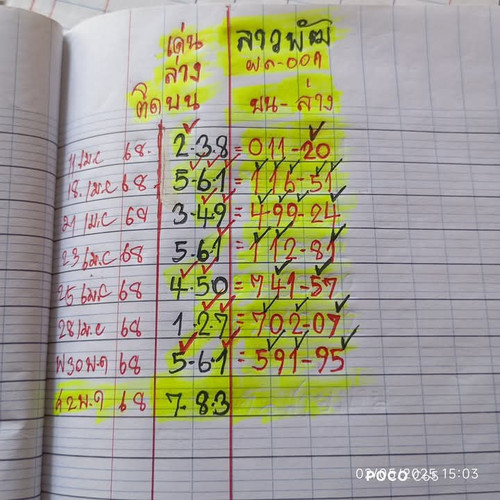 เด่น ลาวพัฒ
ล่าง
ติดบน บน-ล่าง
11 เม.ย 68. 2-3-8 = 011-20
18. เม.ย 68 5-6-1 = 116-51
21 เม.ย 68 3-49 = 499-24
23 เม.ย 68 5-6-1 = 112-81
25 เม.ย 68 4-50 = 741-57
28 เม.ย 68 1-27 = 702-07
พ30 68 5-6-1 = 591-95
68 7-8-3
02/05/2025 15:03
POCO C65